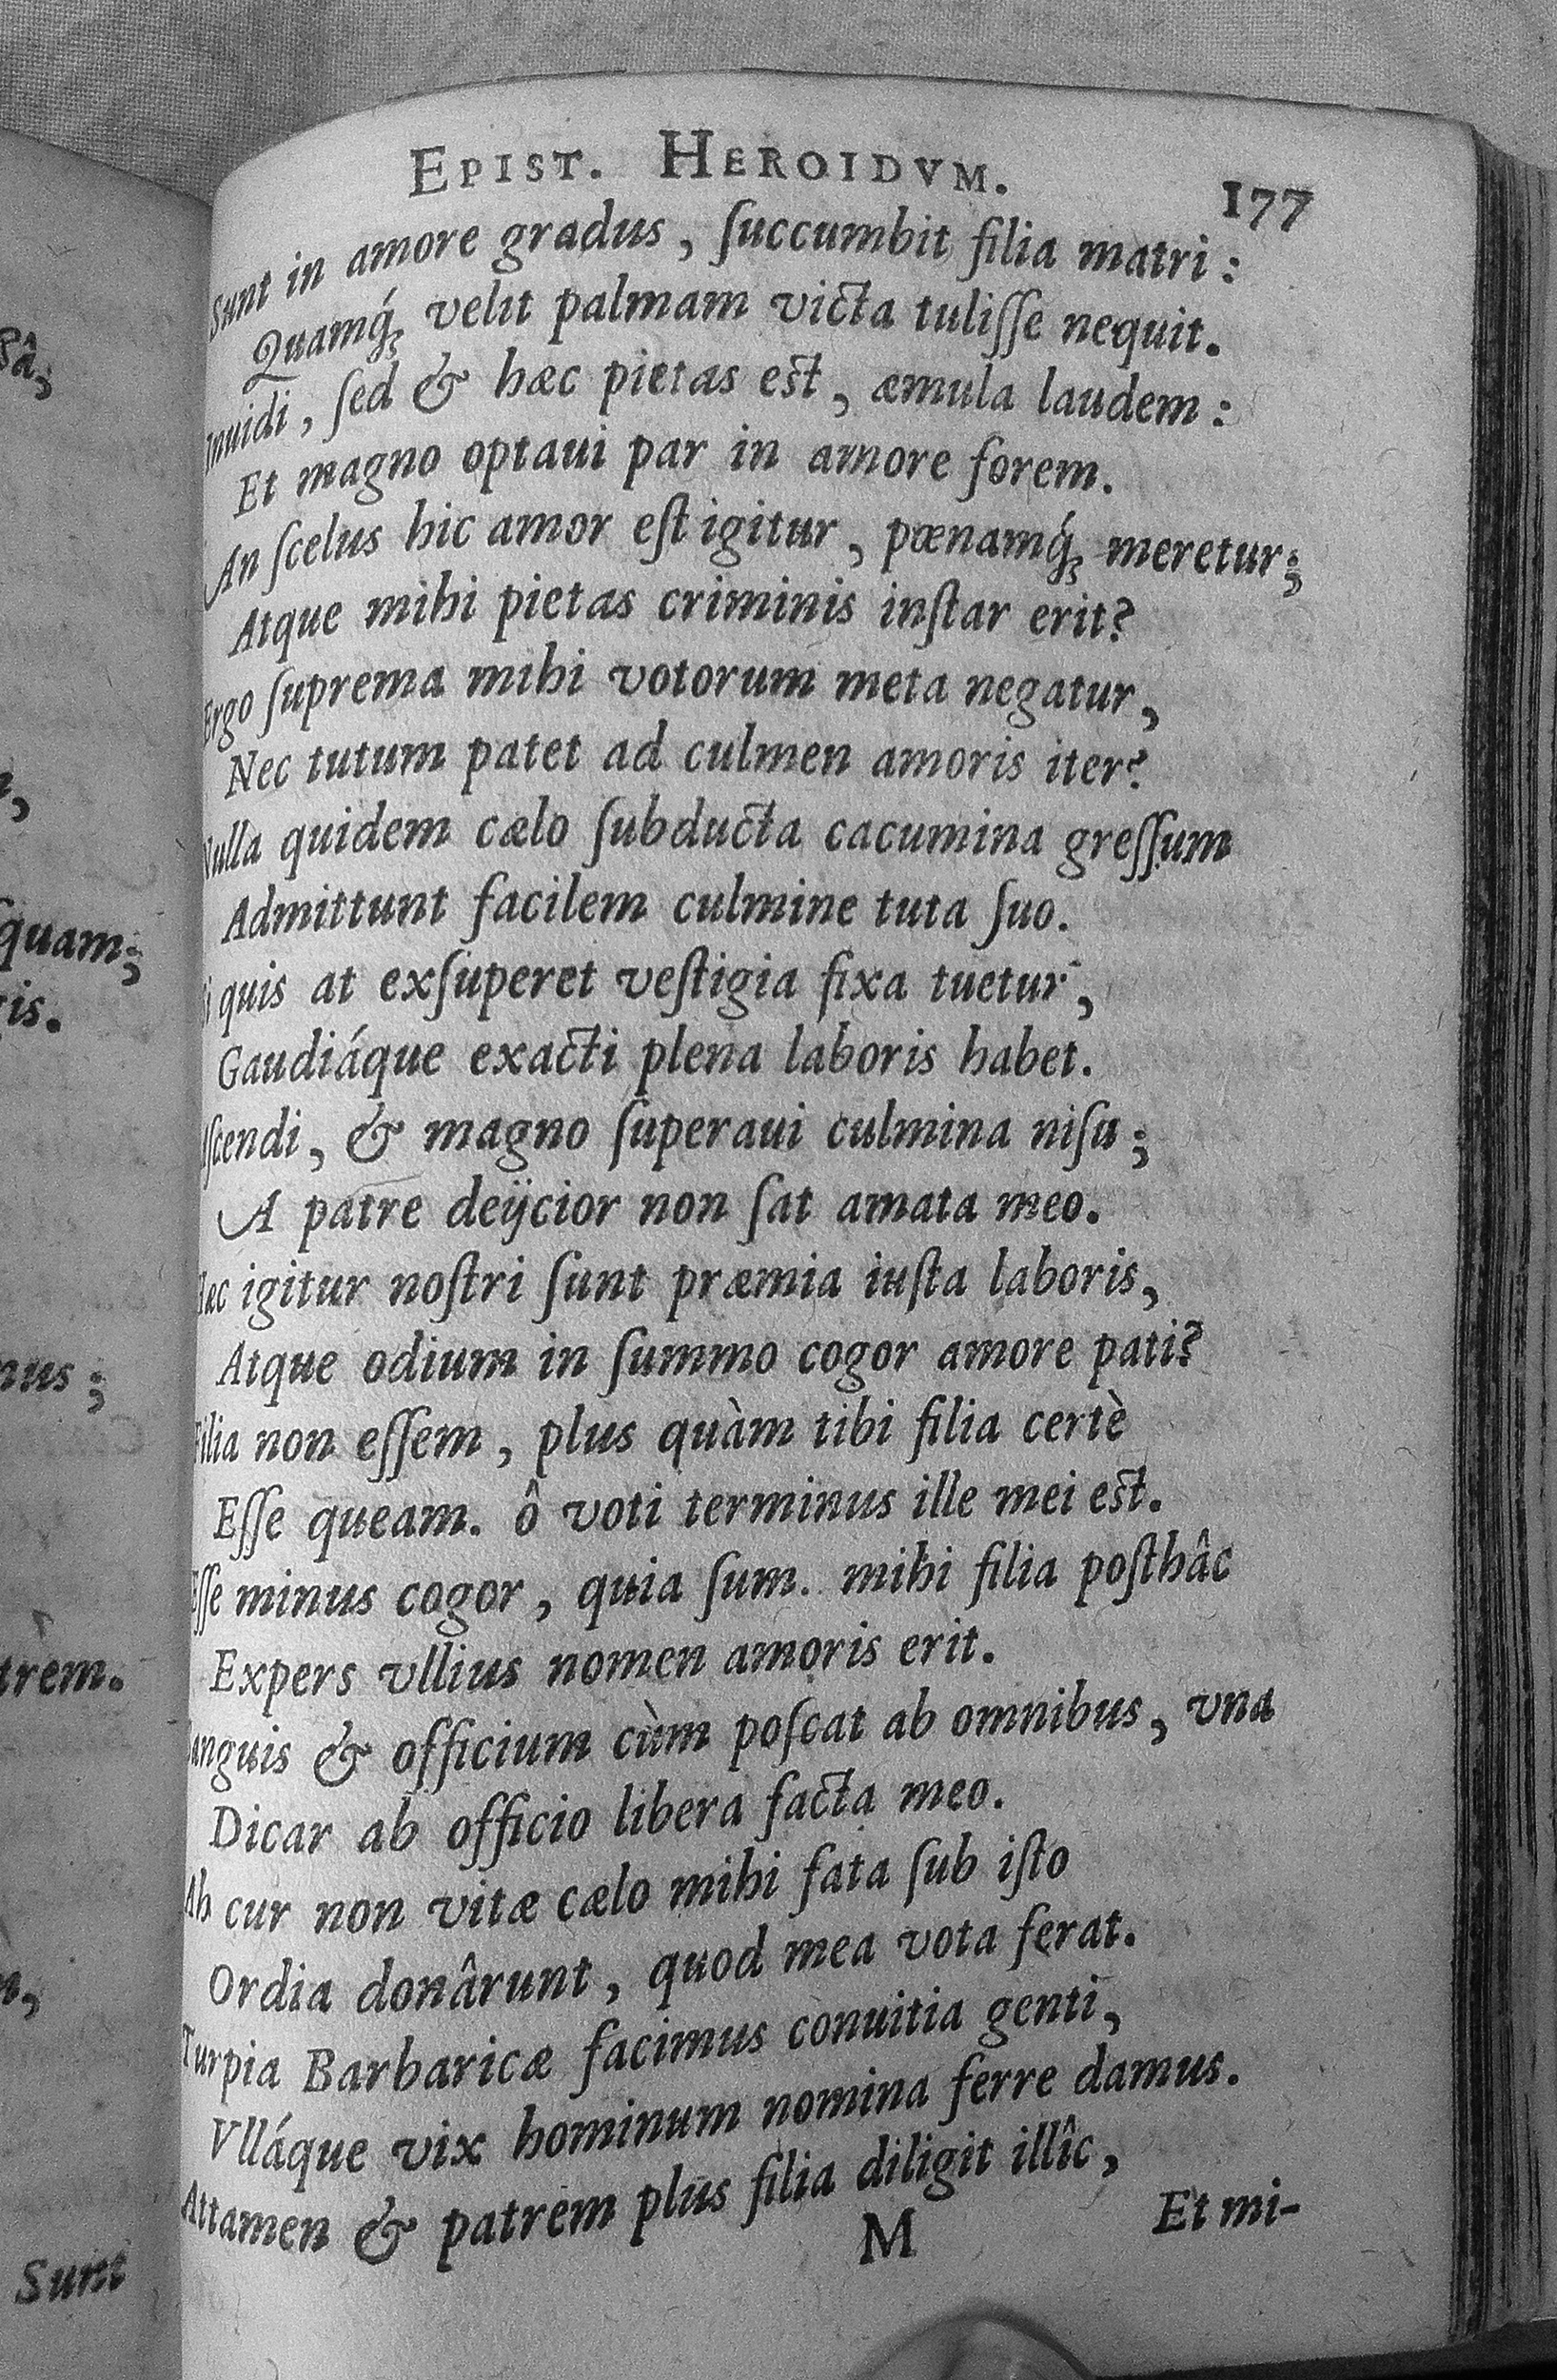 EPIST. HEROIDVM. 177
Sunt in amore gradus, ſuccumbit filia matri:
Quamq́; velit palmam victa tuliſſe nequit.
Inuidi, ſed & hæc pietas est, æmula laudem:
Et magno optaui par in amore forem.
An ſcelus hic amor eſt igitur, pœnamq́; meretur;
Atque mihi pietas criminis inſtar erit?
Ergo ſuprema mihi votorum meta negatur,
Nec tutum patet ad culmen amoris iter?
Nulla quidem cælo ſubducta cacumina greſſum
Admittunt facilem culmine tuta ſuo.
quis at exſuperet veſtigia fixa tuetur,
Gaudiáque exacti plena laboris habet.
ſcendi, & magno ſuperaui culmina niſu;
A patre deijcior non ſat amata meo.
Hæc igitur noſtri ſunt præmia iuſta laboris,
Atque odium in ſummo cogor amore pati?
Filia non eſſem, plus quàm tibi filia certè
Eſſe queam. ô voti terminus ille mei est.
Eſſe minus cogor, quia ſum. mihi filia poſthâc
Expers vllius nomen amoris erit.
Sanguis & officium cùm poſcat ab omnibus, vna
Dicar ab officio libera facta meo.
Ah cur non vitæ cælo mihi fata ſub iſto
Ordia donârunt, quod mea vota ferat.
Turpia Barbaricæ facimus conuitia genti,
Vlláque vix hominum nomina ferre damus.
Attamen & patrem plus filia diligit illîc,
M Et mi-
quam;
is.
nus;
trem.
Sunt